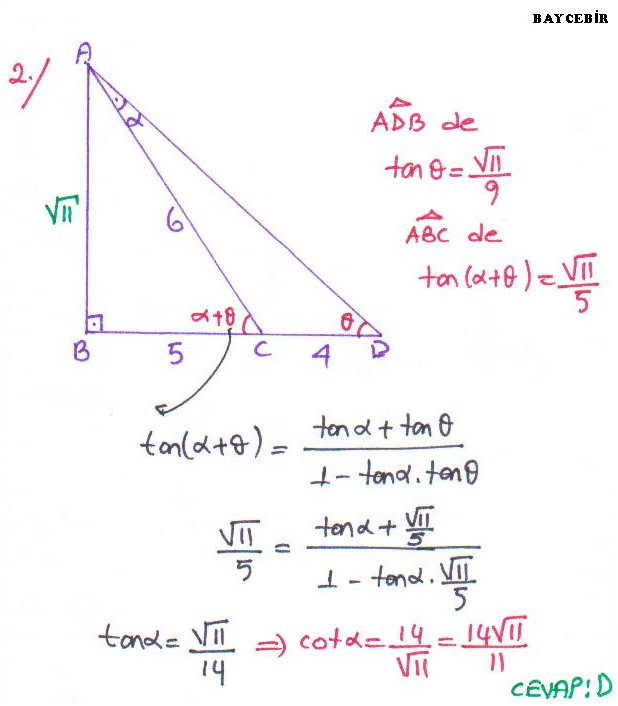 BAYCEBİR
2./
A
α
√11
6
α+θ
θ
B
5
C
4
D
ADB de
tan θ = √11/9
ABC de
tan(α+θ) = √11/5
tan(α+θ) = (tanα + tanθ)/(1 - tanα.tanθ)
√11/5 = (tanα + √11/5)/(1 - tanα.√11/5)
tanα = √11/14 ⇒ cotα = 14/√11 = 14√11/11
CEVAP:D